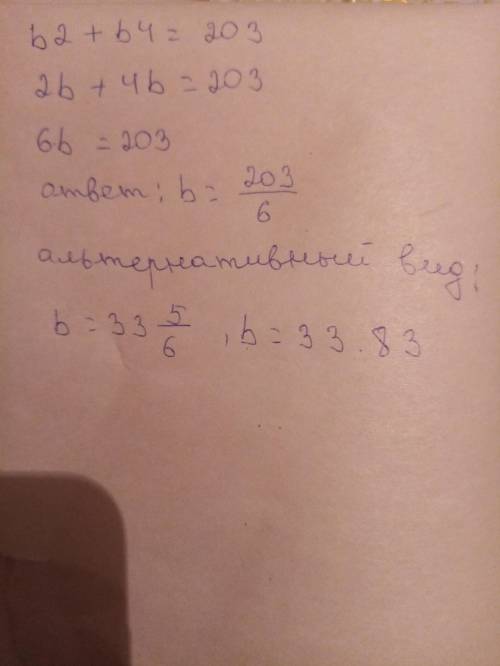 b2 + b4 = 203
2b + 4b = 203
6b = 203
ответ: b = 203/6
альтернативный вид:
b = 33 5/6, b = 33.83